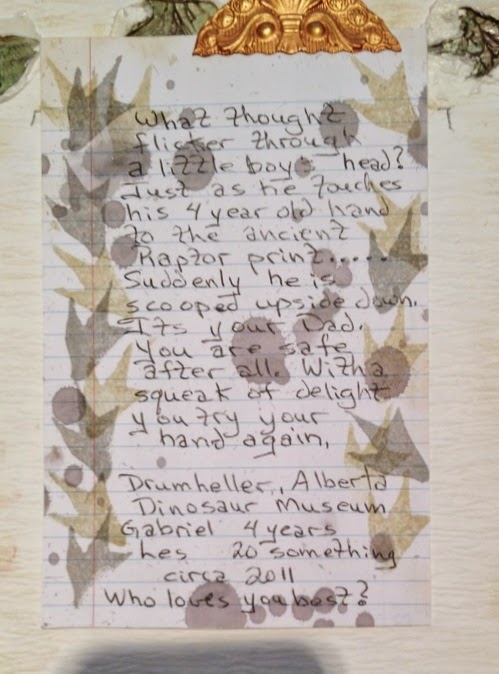 What thought
flicter through
a little boy's head?
Just as he touches
his 4 year old hand
to the ancient
Raptor print......
Suddenly he is
scooped upside down.
Its your Dad.
You are safe
after all. With a
squeak of delight
you try your
hand again,
Drumheller, Alberta
Dinosaur Museum
Gabriel 4 years
hes 20 something
circa 2011
Who loves you best?